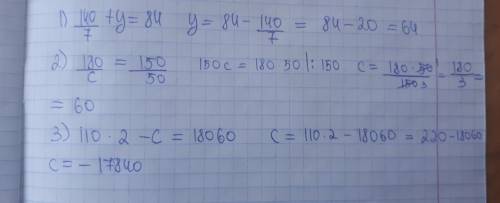 1) 140/7 + y = 84 y = 84 - 140/7 = 84 - 20 = 64
2) 180/c = 150/50 150c = 180 · 50 |: 150 c = 180 · 50/150 3 = 180/3 =
= 60
3) 110 · 2 - c = 18060 c = 110 · 2 - 18060 = 220 - 18060
c = - 17840